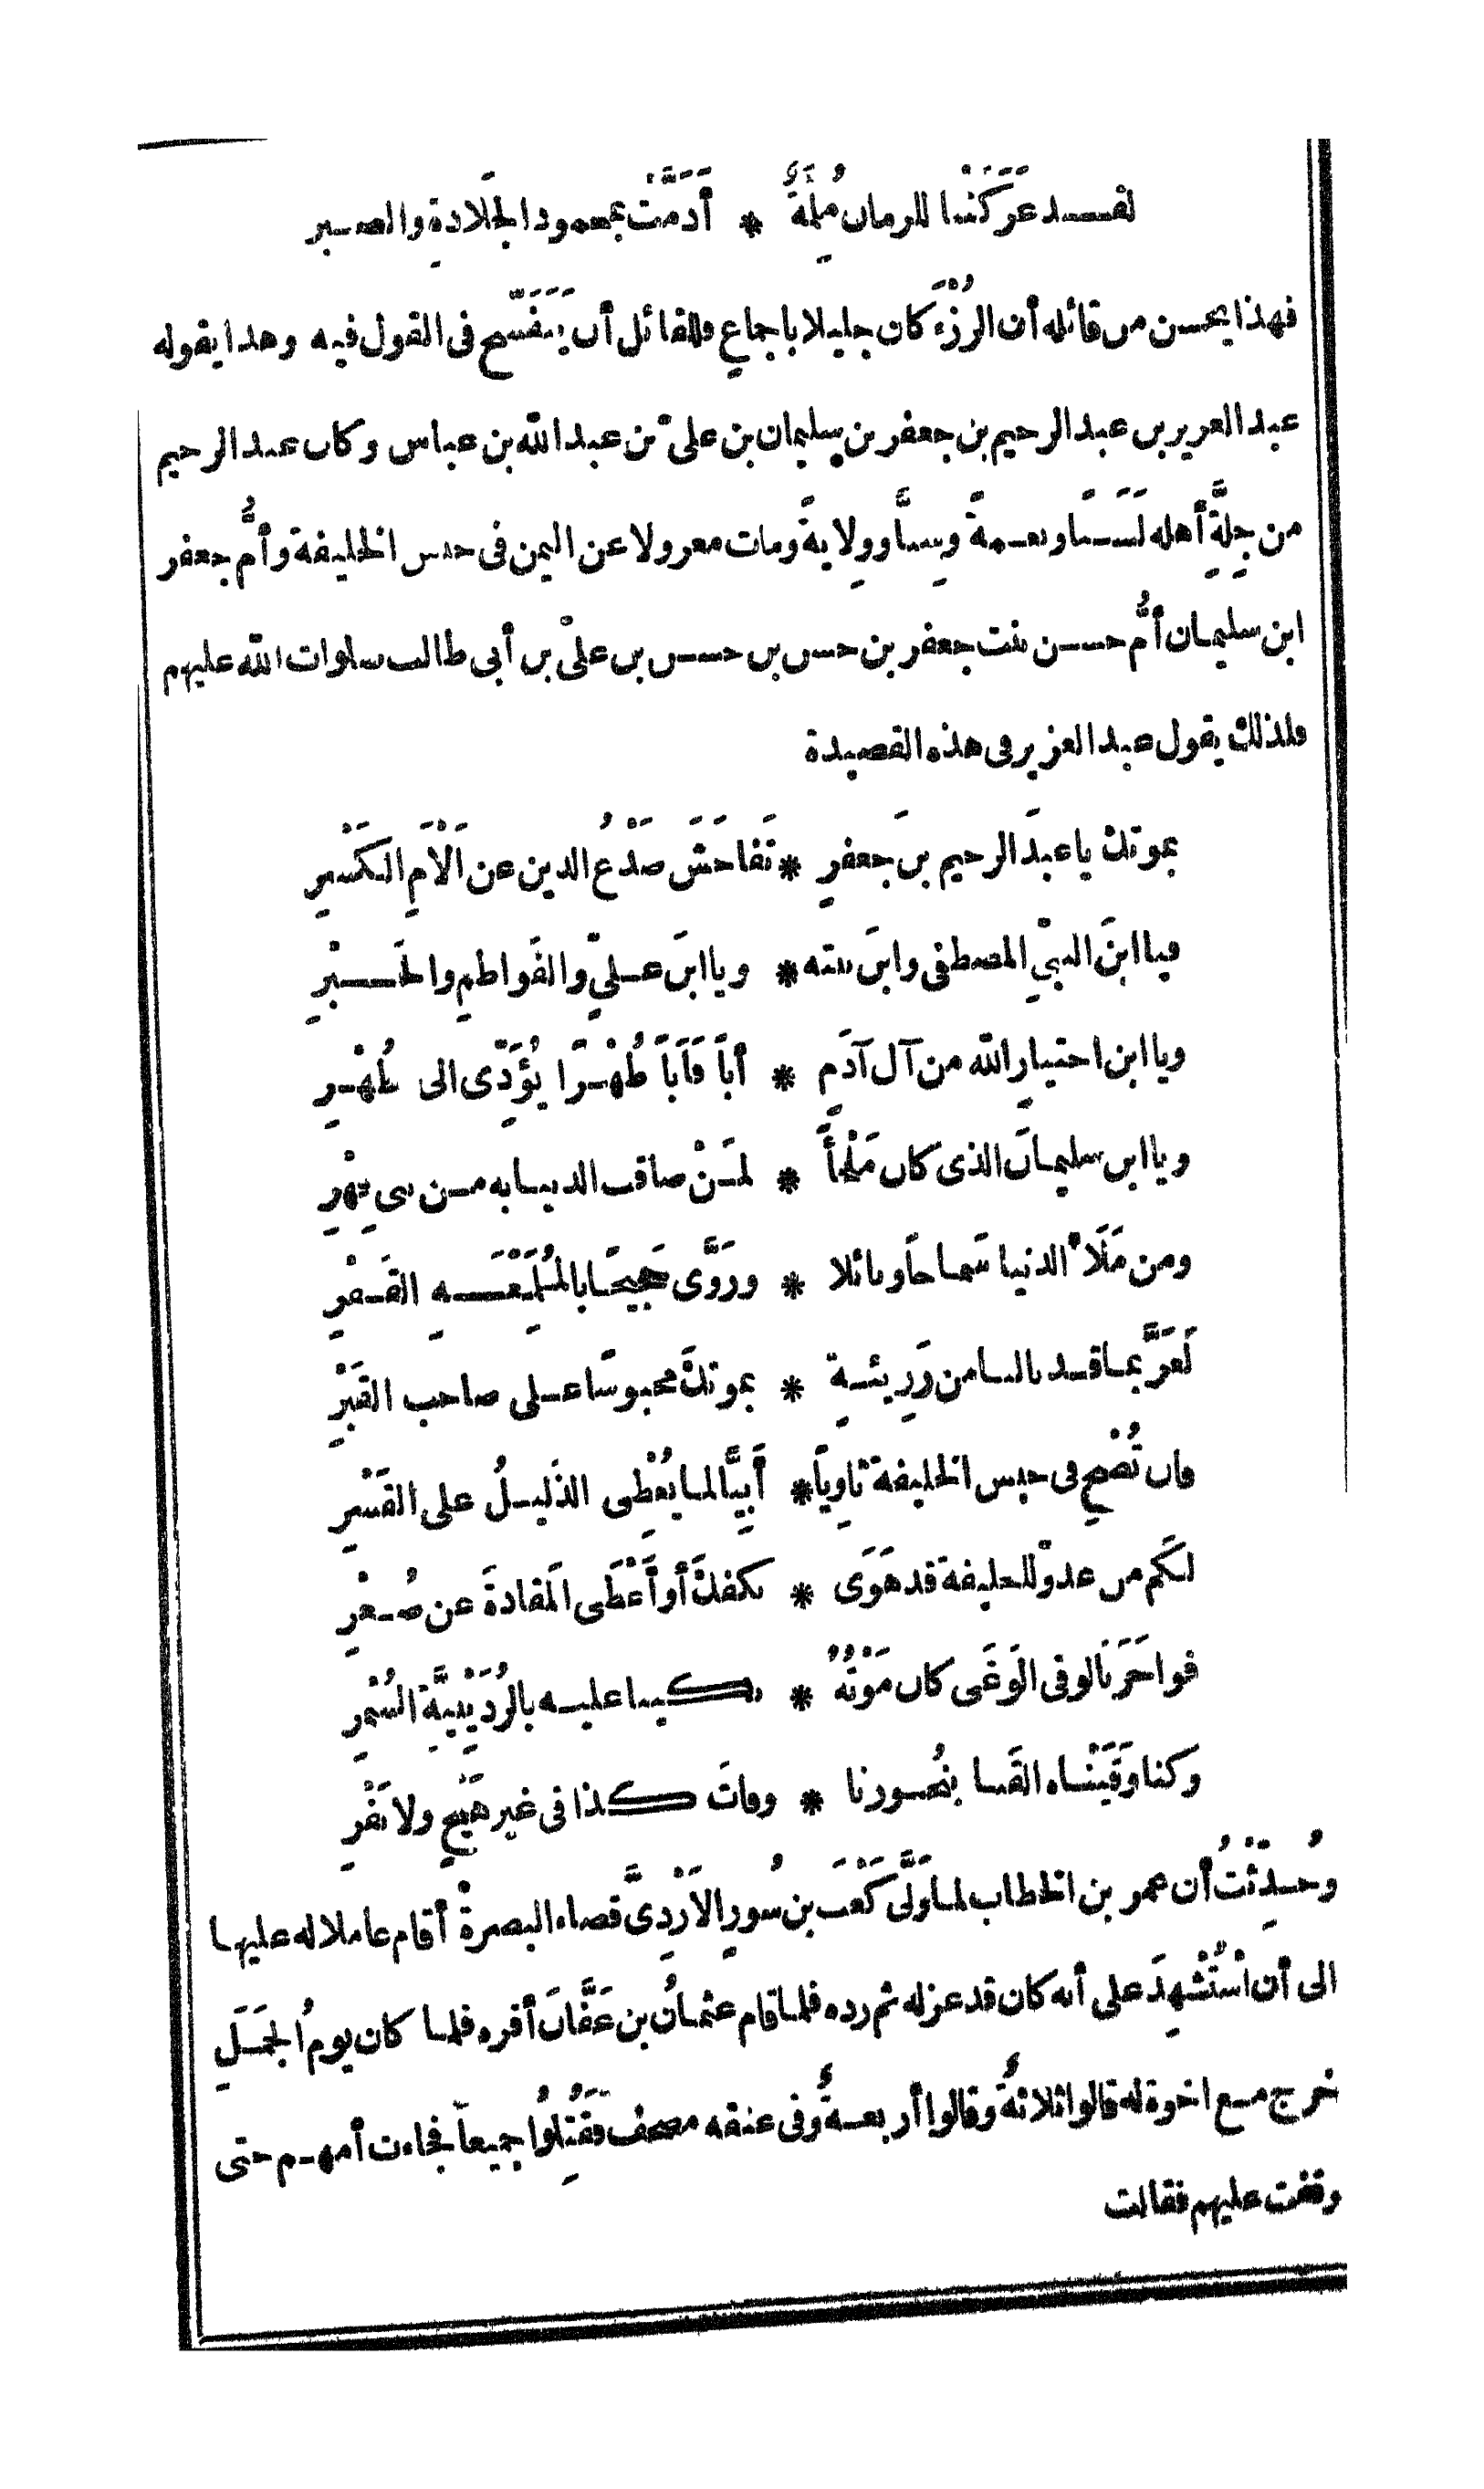 لقد عَرَكَتْنا للزمان مُلِمَّةٌ * أَذَمَّتْ بمحمود الجَلادةِ والصبر
فهذا يحسن من قائله أن الرُزْءَ كان جليلا باجماعٍ فللقائل أن يَتَفَسَّح فى القول فيه وهذا يقوله
عبد العزيز بن عبد الرحيم بن جعفر بن سليمان بن علىّ بن عبد الله بن عباس وكان عبد الرحيم
من جِلَّةِ أهله لَسَنًا ونعمةً وسِنًّا ووِلايةً ومات معزولا عن اليمن فى حبس الخليفة وأُمُّ جعفر
ابن سليمان أُمُّ حسن بنت جعفر بن حسن بن حسن بن علىّ بن أبى طالب صلوات الله عليهم
فلذلك يقول عبد العزيز فى هذه القصيدة
بموتك ياعبدَ الرحيم بنَ جعفرٍ * تَفاحَشَ صَدْعُ الدين عن أَلْأَمِ الكَسْرِ
فيا ابنَ النبىِّ المصطفى وابنَ بنته * ويا ابنَ علىٍّ والفَواطمِ والحَبْرِ
ويا ابن اختيارِ الله من آل آدَمٍ * أباً فَأَباً طُهْرًا يُؤَدِّى الى طُهْرِ
ويا ابن سليمانَ الذى كان مَلْجأً * لمَنْ ضاقت الدنيا به من بنى فِهْرِ
ومن مَلَأَ الدنيا سَماحاً ونائلا * ورَوَّى حَجيجًا بالمُلَمَّعَةِ القَفْرِ
لَعَزَّ بما قد نالنا من رَزِيئةٍ * بموتكَ محبوسًا على صاحب القَبْرِ
فان تُضْحِ فى حبس الخليفة ثاوِياً * أَبِيًّا لما يُعْطِى الذَليلُ على القَسْرِ
لَكَم من عدوّ للخليفة قد هَوَى * بكفكَ أو أَعْطَى المَقادةَ عن صُغْرِ
فواحَزَنا لو فى الوَغَى كان مَوْتُهُ * بكينا عليه بالرُدَيْنِيَّة السُمْرِ
وكنا وَقَيْناه القَنا بنُحورنا * وفاتَ كذا فى غير هَيْجٍ ولا نَفْرِ
وحُدِّثْتُ أن عمر بن الخطاب لما وَلَّى كَعْبَ بن سُورٍ الأَزْدِىَّ قضاء البصرة أقام عاملا له عليها
الى أن اسْتُشْهِدَ على أنه كان قد عزله ثم رده فلما قام عثمانُ بن عَفَّانَ أقره فلما كان يومُ الجَمَلِ
خرج مع اخوة له قالوا ثلاثةٌ وقالوا أربعةٌ وفى عنقه مصحف فقُتِلُوا جميعاً فجاءت أمهم حتى
وقفت عليهم فقالت